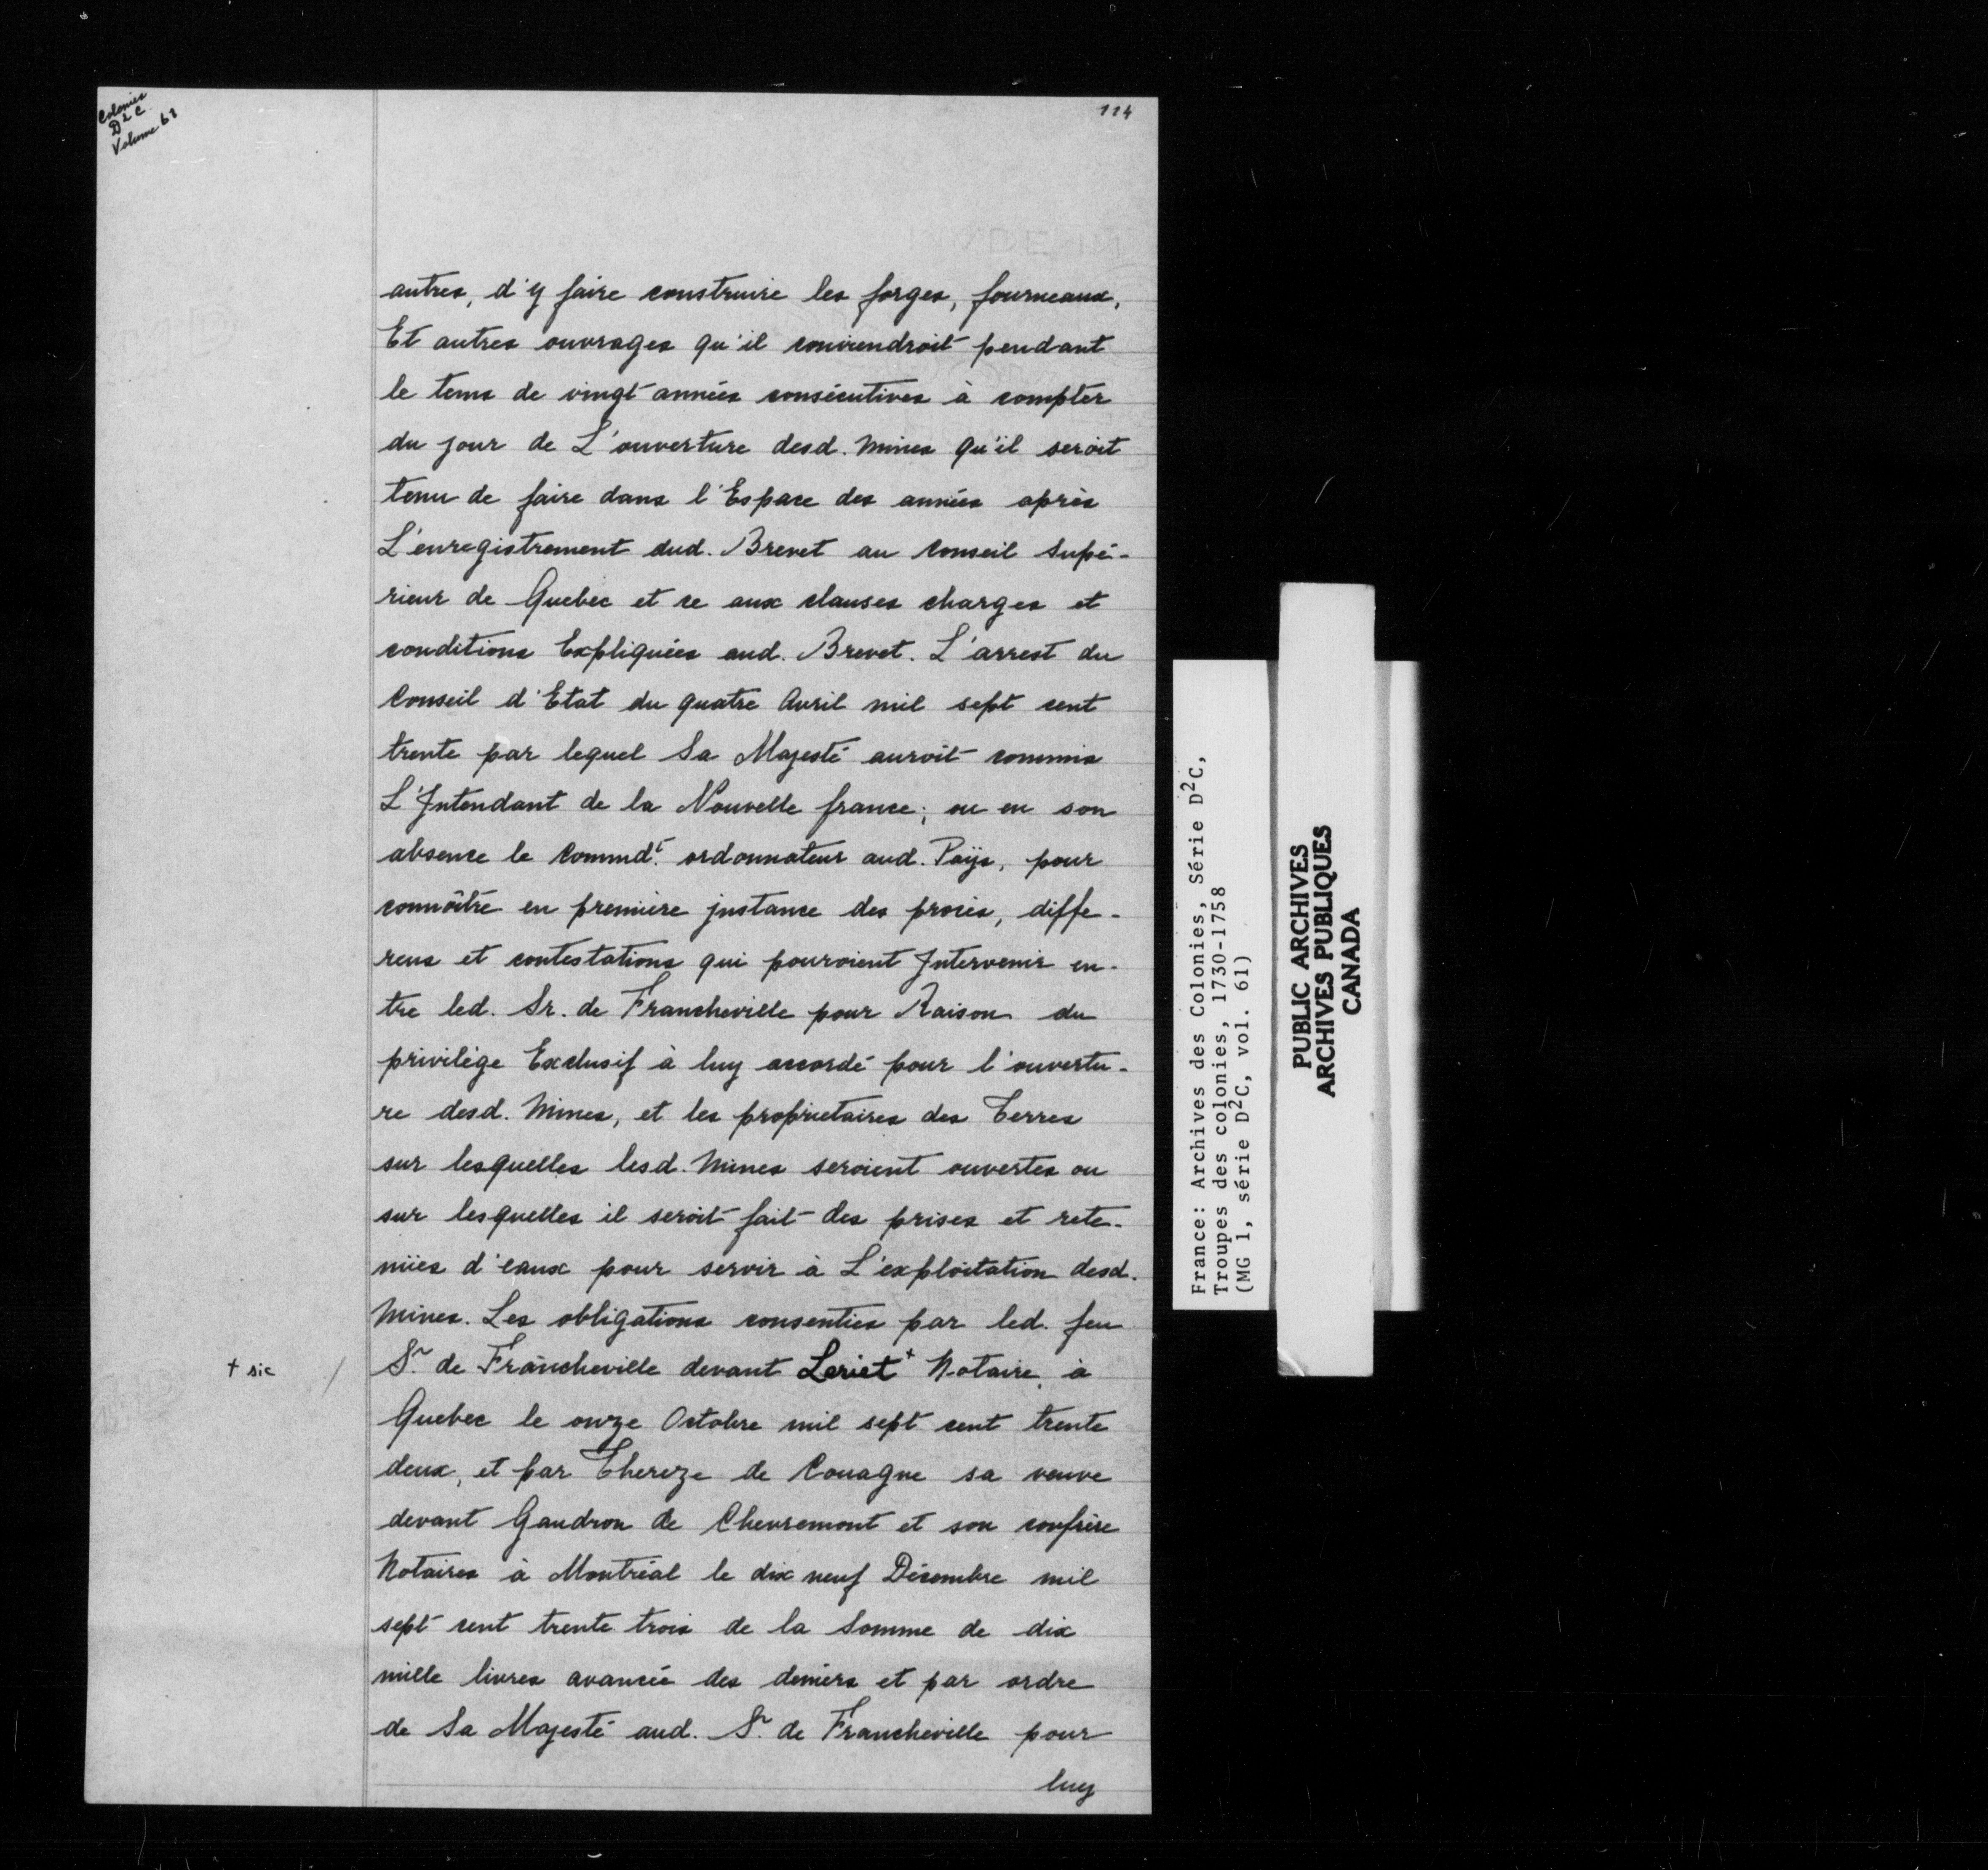 Colonies
D2C
Volume 61
114
autres, d'y faire construire les forges, fourneaux,
Et autres ouvrages qu'il conviendroit pendant
le tems de vingt années consécutives à compter
du jour de L'ouverture desd. Mines qu'il seroit
tenu de faire dans l'Espace des années après
L'enregistrement dud. Brevet au Conseil Supé-
rieur de Quebec et ce aux clauses charges et
conditions Expliquées aud. Brevet. L'arrest du
Conseil d'Etat du quatre Avril mil sept cent
trente par lequel Sa Majesté auroit commis
L'Intendant de la Nouvelle france; ou en son
absence le Commdt. ordonnateur aud. Païs, pour
connôitre en premiere justance des procès, diffe-
rens et contestations qui pouroient Intervenir en-
tre led. Sr. de Francheville pour Raison du
privilège Exclusif à luy accordé pour l'ouvertu-
re desd. Mines, et les proprietaires des Terres
sur lesquelles lesd. Mines seroient ouvertes ou
sur lesquelles il seroit fait des prises et rete-
nües d'eaux pour servir à L'exploitation desd.
Mines. Les obligations consenties par led. feu
Sr. de Francheville devant Leriet+ Notaire à
+ sic
Quebec le onze Octobre mil sept cent trente
deux, et par Thereze de Couagne sa veuve
devant Gaudron de Chevremont et son confrère
Notaires à Montréal le dix neuf Décembre mil
sept cent trente trois de la Somme de dix
mille livres avancée des deniers et par ordre
de Sa Majesté aud. Sr. de Francheville pour
luy
France: Archives des Colonies, Série D2C,
Troupes des colonies, 1730-1758
(MG 1, série D2C, vol. 61)
PUBLIC ARCHIVES
ARCHIVES PUBLIQUES
CANADA